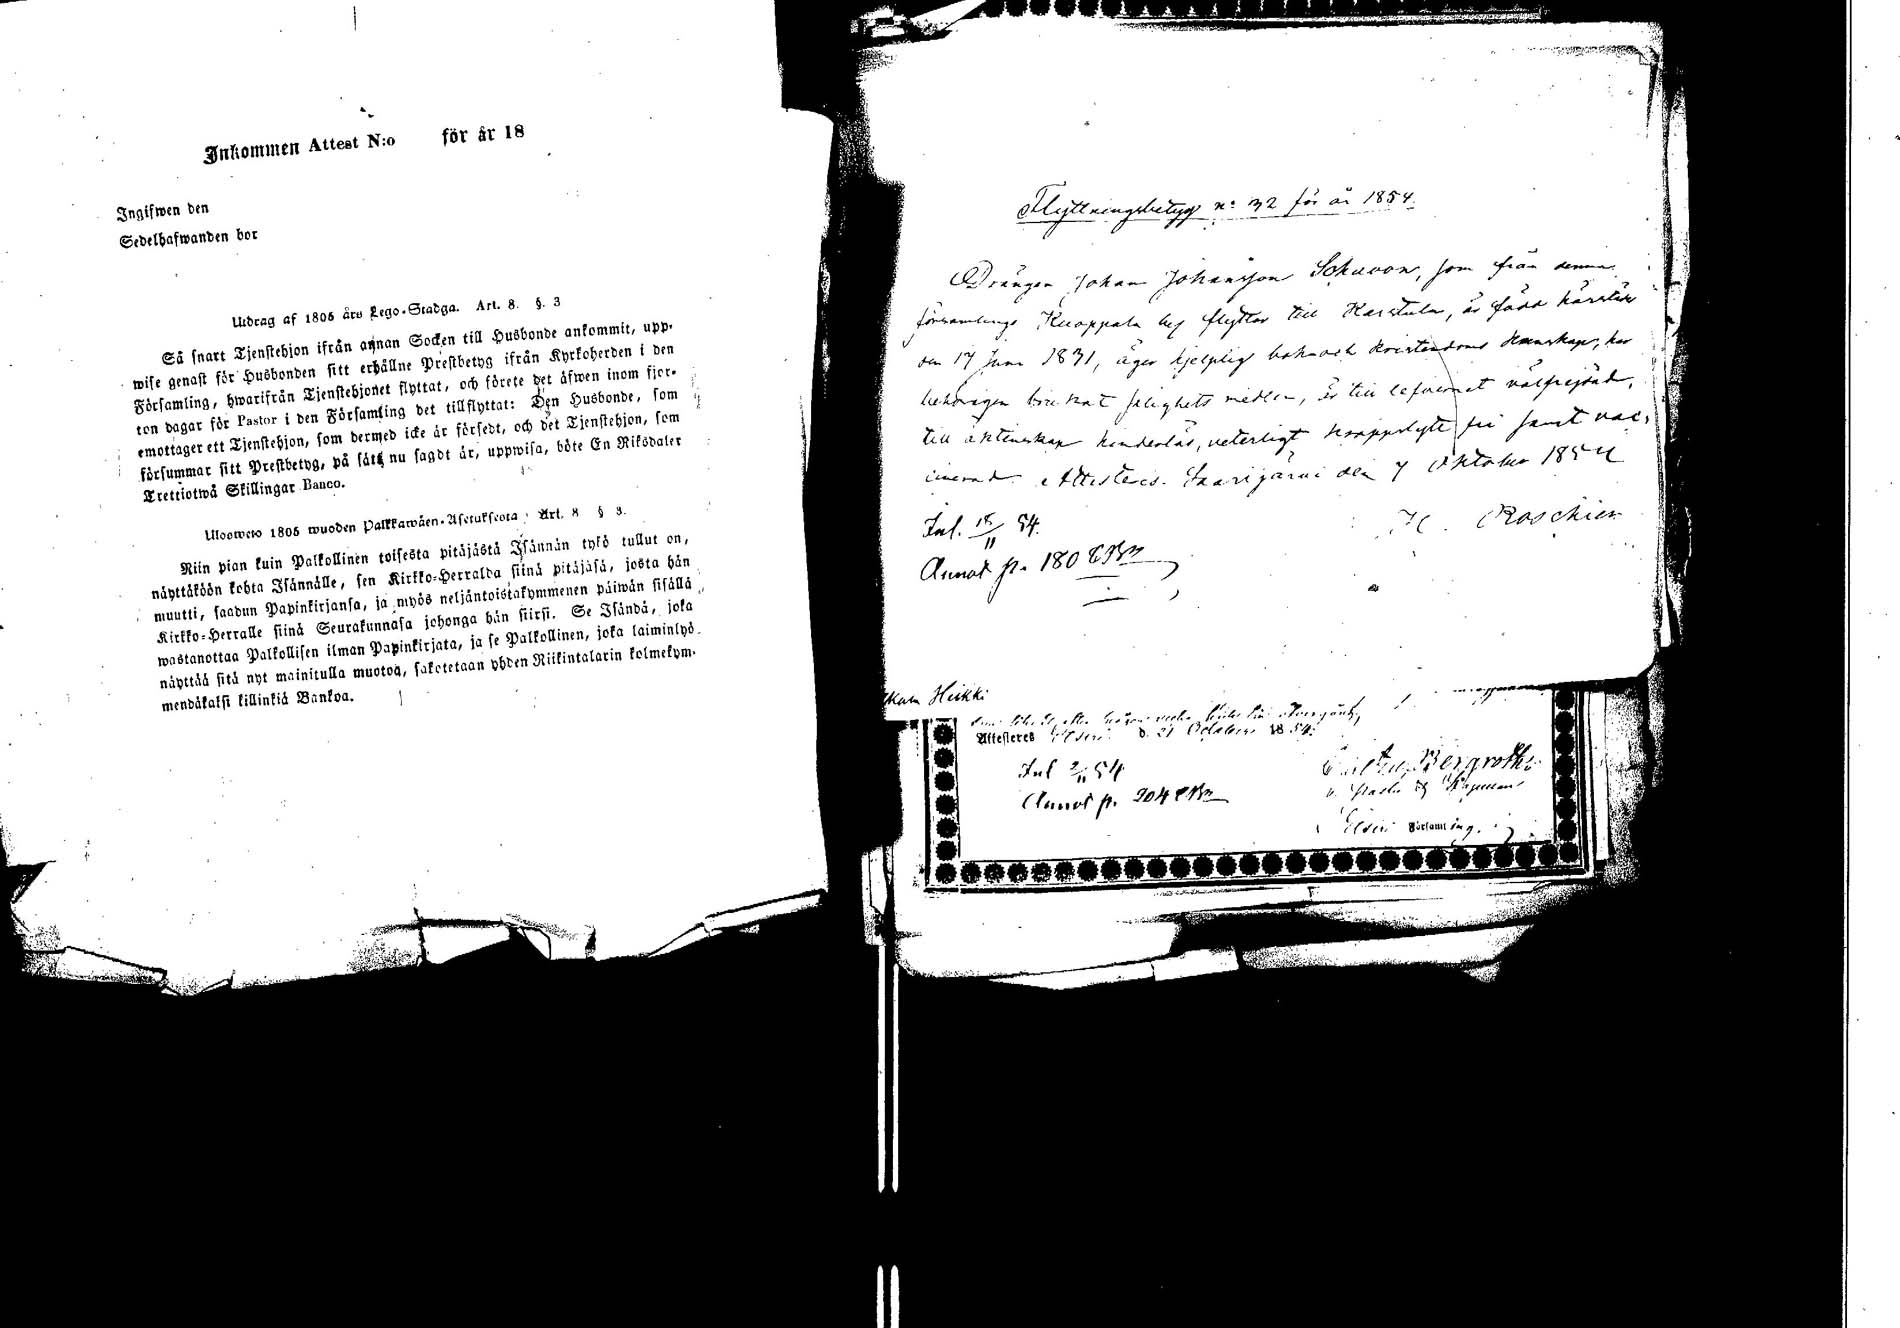 Inkommen Attest N:o för år 18
Ingifwen den
Sedelhafwanden bor
Utdrag af 1805 års Lego-Stadga. Art. 8. §. 3
Så snart Tjenstehjon ifrån annan Socken till Husbonde ankommit, upp-
wise genast för Husbonden sitt erhållne Prestbetyg ifrån Kyrkoherden i den
Församling, hwarifrån Tjenstehjonet flyttat, och förete det äfwen inom fjor-
ton dagar för Pastor i den Församling det tillflyttat: Den Husbonde, som
emottager ett Tjenstehjon, som dermed icke är försedt, och det Tjenstehjon, som
försummar sitt Prestbetyg, på sätt nu sagdt är, uppwisa, böte En Riksdaler
Trettiotwå Skillingar Banco.
Ulosweto 1805 wuoden Palkkawäen-Asetuksesta Art. 8 § 3.
Niin pian kuin Palkollinen toisesta pitäjästä Isännän tykö tullut on,
näyttäköön kohta Isännälle, sen Kirkko-Herralda siinä pitäjäsä, josta hän
muutti, saadun Papinkirjansa, ja myös neljäntoistakymmenen päiwän sisällä
Kirkko-Herralle siinä Seurakunnasa johonga hän siirsi. Se Isändä, joka
wastanottaa Palkollisen ilman Papinkirjata, ja se Palkollinen, joka laiminlyö
näyttää sitä nyt mainitulla muotoa, sakotetaan yhden Riikintalarin kolmekym-
mendäkaksi killinkiä Bankoa.
Flyttningsbetyg n:o 32 för år 1854.
Drängen Johan Johansson Schavon, som från denna
församlings Kuoppala by flyttar till Karstula, är född härstädes
den 17 Juni 1831, äger hjelplig bok och Kristendoms kunskap, har
behörigen brukat salighets medlen, är till lefvernet välfrejdad,
till äktenskap hinderlös, veterligt kroppslyte fri samt vac-
cinerad. Attesteras. Saarijärvi den 7 Oktober 1854
K. Roschier
Inl. 18/11 54.
Annot p. 180 CBm
Heikki
Attesteres d. 21 October 1854.
Inl 2/11 54
Bergroth
Annot p. 204 CBm
Församling.